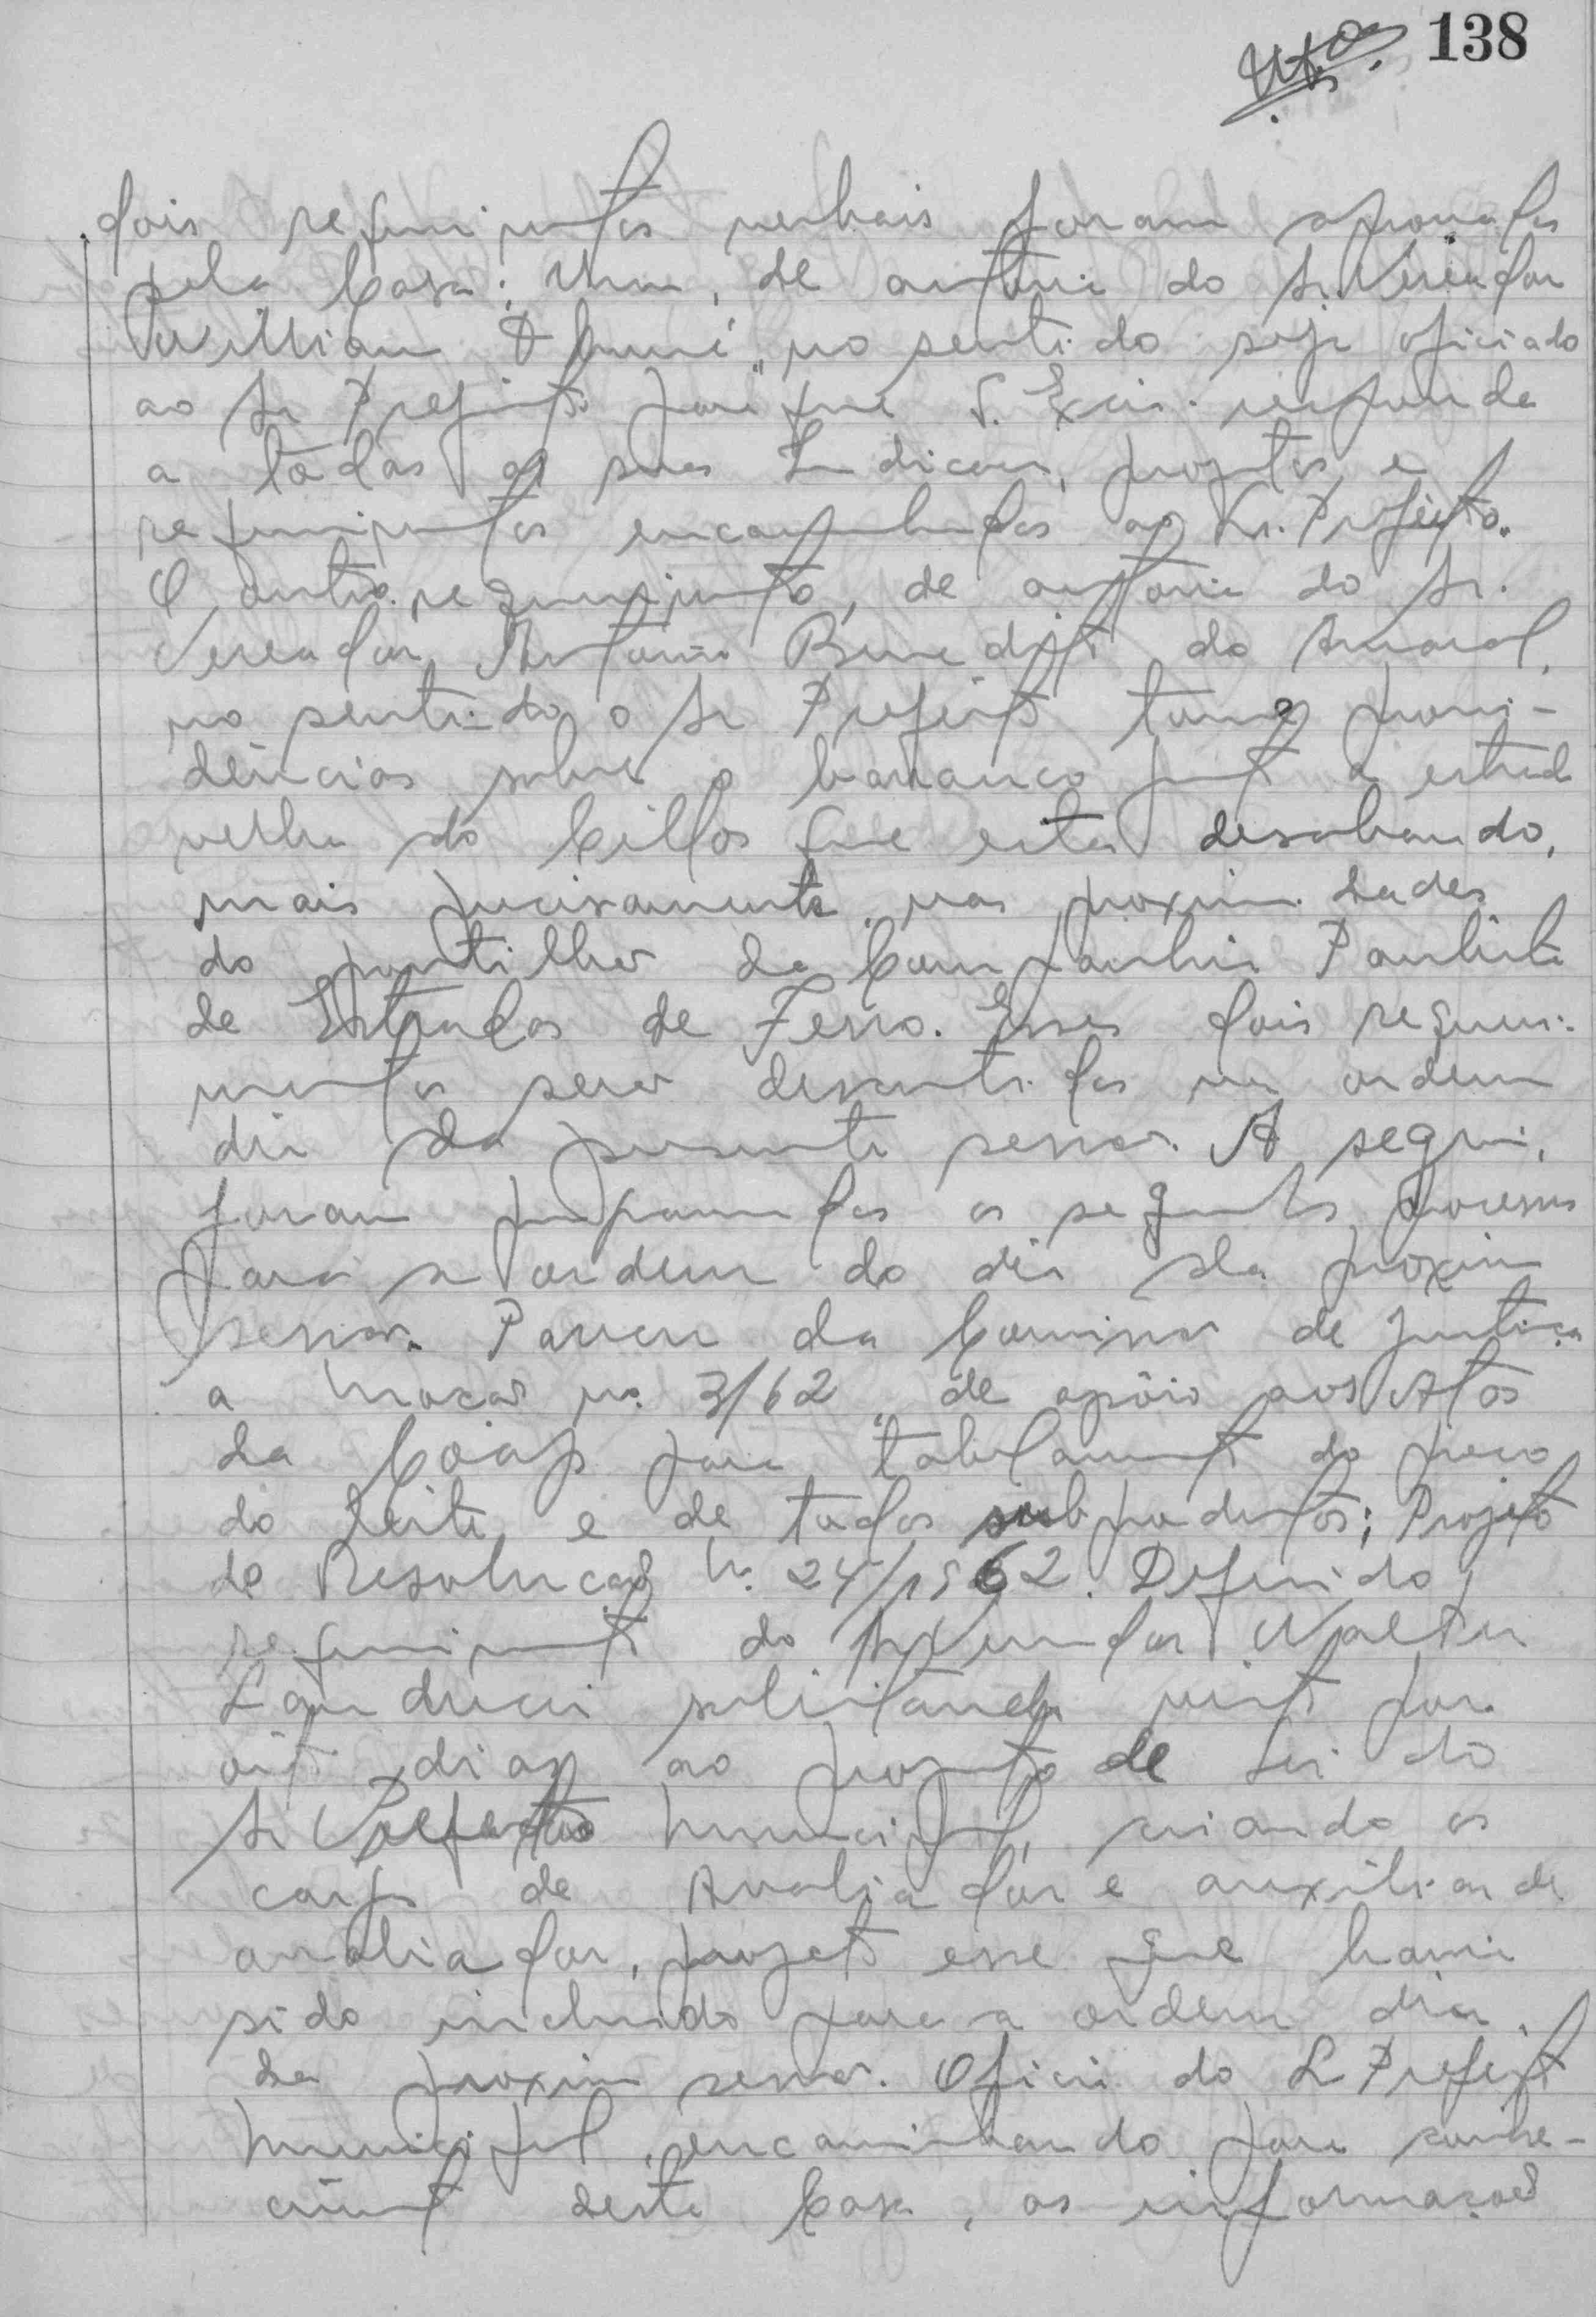 138
dois requerimentos verbais foram aprovados
pela Casa: Um, de autoria do Sr. Vereador
Willian no sentido seja oficiado
ao Sr Prefeito para que S. Excia. responda
a todas as suas Indicações, projetos e
requerimentos encaminhados ao Sr. Prefeito.
O outro requerimento, de autoria do Sr.
Vereador Antonio Benedito do Amaral,
no sentido o Sr Prefeito tome provi-
dências sobre o barranco junto a estrada
velha do Cillos que esta desabando,
mais precisamente nas proximidades
do pontilhão da Companhia Paulista
de Estradas de Ferro. Esses dois requeri-
mentos serão discutidos na ordem
dia da presente sessão. A seguir,
foram os seguintes processos
para a ordem do dia da proxima
sessão. Parecer da Comissão de Justiça
a Moção nº. 3/62 "de apôio aos Atos
da Coap para tabelamento do preço
do leite e de todos subprodutos; Projeto
de Resolução N. 24/1962. Deferido
requerimento do Sr Vereador Walter
Landucci solicitando vista por
oito dias ao projeto de Lei do
Sr Prefeito Municipal, criando os
cargos de Avaliador e auxiliar de
avaliador, projeto esse que havia
sido incluido para a ordem dia
da proxima sessão. Oficio do Sr Prefeito
Municipal, encaminhando para conhe-
cimento desta Casa, as informações